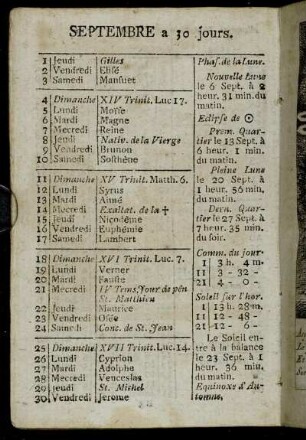 SEPTEMBRE a 30 jours.
1 Jeudi Gilles
2 Vendredi Elisé
3 Samedi Mansuet
4 Dimanche XIV Trinit. Luc 17.
5 Lundi Moïse
6 Mardi Magne
7 Mecredi Reine
8 Jeudi Nativ. de la Vierge
9 Vendredi Brunon
10 Samedi Sosthène
11 Dimanche XV Trinit. Matth. 6.
12 Lundi Syrus
13 Mardi Aimé
14 Mecredi Exaltat. de la ✝
15 Jeudi Nicodème
16 Vendredi Euphémie
17 Samedi Lambert
18 Dimanche XVI Trinit. Luc. 7.
19 Lundi Verner
20 Mardi Fauste
21 Mecredi IV Tems, Jour de pén
St. Matthieu
22 Jeudi Maurice
23 Vendredi Osée
24 Samedi Conc. de St. Jean
25 Dimanche XVII Trinit. Luc. 14.
26 Lundi Cyprien
27 Mardi Adolphe
28 Mecredi Venceslas
29 Jeudi St. Michel
30 Vendredi Jerome
Phas. de la Lune.
Nouvelle Lune
le 6 Sept. à 2
heur. 31 min. du
matin.
Eclipse de ☉
Prem. Quar-
tier le 13 Sept. à
6 heur. 1 min.
du matin.
Pleine Lune
le 20 Sept. à
1 heur. 56 min.
du matin.
Dern. Quar-
tier le 27 Sept. à
7 heur. 35 min.
du soir.
Comm. du jour.
1 3 h. 4 m.
11 3 - 32 -
21 4 - 0 -
Soleil sur l'hor.
1 13 h. 28 m.
11 12 - 48 -
21 12 - 6 -
Le Soleil en-
tre à la balance
le 23 Sept. à 1
heur. 36 min.
du matin.
Equinoxe d'Au-
tomne.